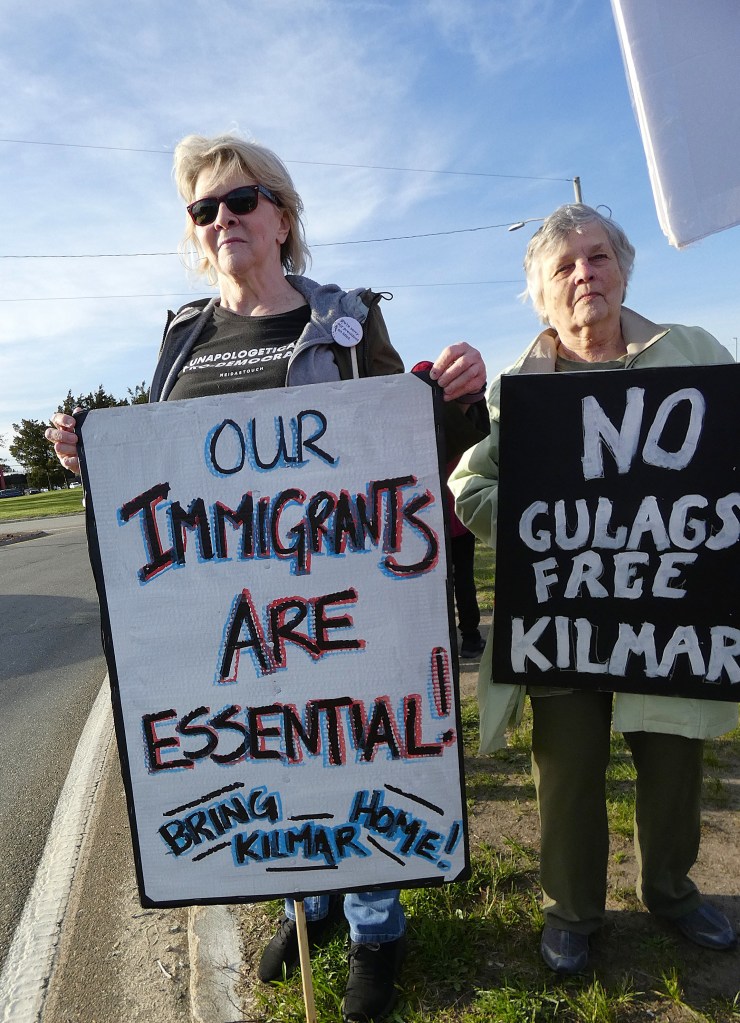 UNAPOLOGETICA
PRO-DEMOCRA
MEIDASTOUCH
OUR
IMMIGRANTS
ARE
ESSENTIAL!
BRING
KILMAR
HOME!
NO
GULAGS
FREE
KILMAR